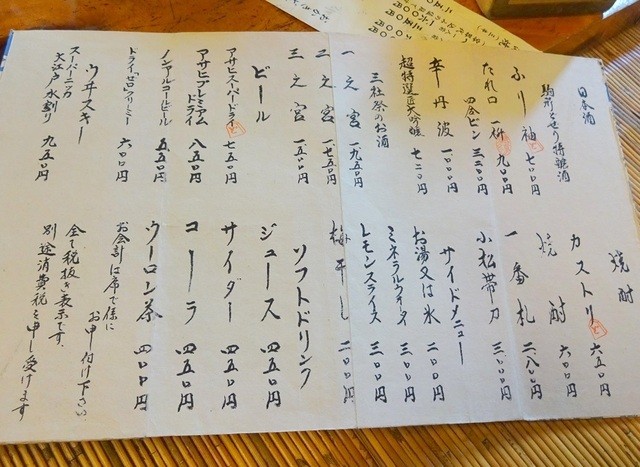 日本酒
駒形どぜう特撰酒
ふり袖 七〇〇円
たれ口 一杯 九〇〇円
四合ビン 三二〇〇円
辛丹波 一〇〇〇円
超特選 大吟醸 七二〇円
三社祭のお酒
一之宮 一九五〇円
二之宮 一七五〇円
三之宮 一五〇〇円
ビール
アサヒスーパードライ 七五〇円
アサヒプレミアム
ドライ 八五〇円
ノンアルコールビール
ドライゼロフリー 五五〇円
六〇〇円
ウヰスキー
スーパーニッカ
大江戸水割り 九五〇円
焼酎
カストリ 六五〇円
焼酎 六〇〇円
一番札 二八〇〇円
小松帯刀 三〇〇〇円
サイドメニュー
お湯又は氷 二〇〇円
ミネラルウォーター 三〇〇円
レモンスライス 三〇〇円
梅干し 二〇〇円
ソフトドリンク
ジュース 四五〇円
サイダー 四五〇円
コーラ 四五〇円
ウーロン茶 四〇〇円
お会計は席で係に
お申付け下さい
全て税抜き表示です。
別途消費税を申し受けます